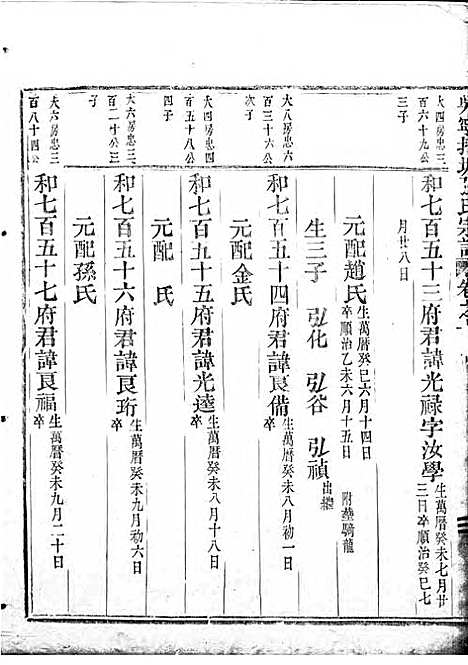 大四房忠三
百六十九公
三子
和七百五十三府君諱光祿字汝學
生萬曆癸未七月廿
三日卒順治癸巳七
月廿八日
元配趙氏
生萬曆癸巳六月十四日
卒順治乙未六月十五日
附塟騎龍
生三子 弘化 弘谷 弘禎
出繼
大八房忠六
百三十六公
次子
和七百五十四府君諱良備
生萬曆癸未八月初一日
卒
元配金氏
大四房忠三
百五十八公
四子
和七百五十五府君諱光逵
生萬曆癸未八月十八日
卒
元配 氏
大六房忠三
百二十公三
子
和七百五十六府君諱良珩
生萬曆癸未九月初六日
卒
元配孫氏
大六房忠三
百八十四公
和七百五十七府君諱良福
生萬曆癸未九月二十日
卒